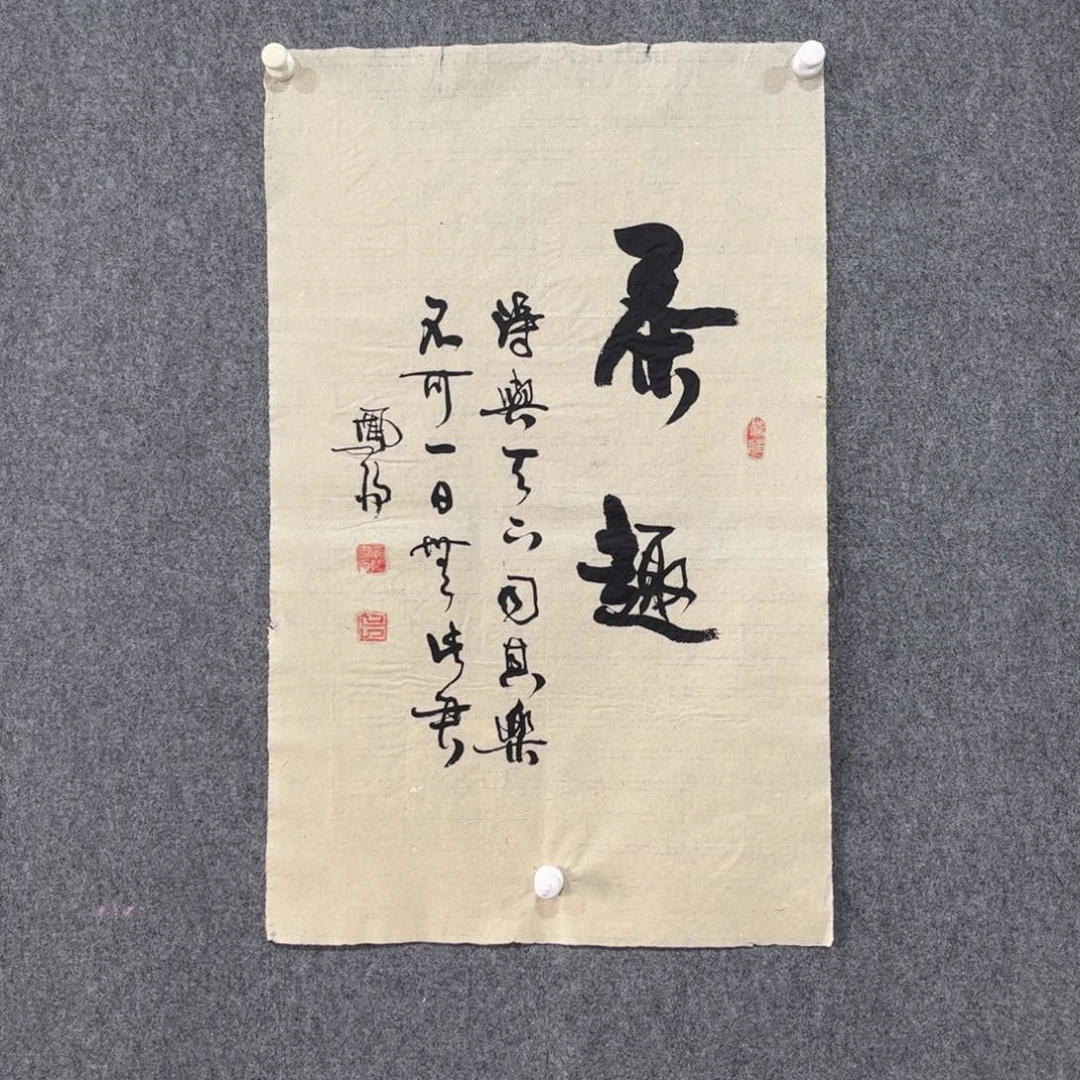 茶趣
得與天下同其樂
不可一日無此君